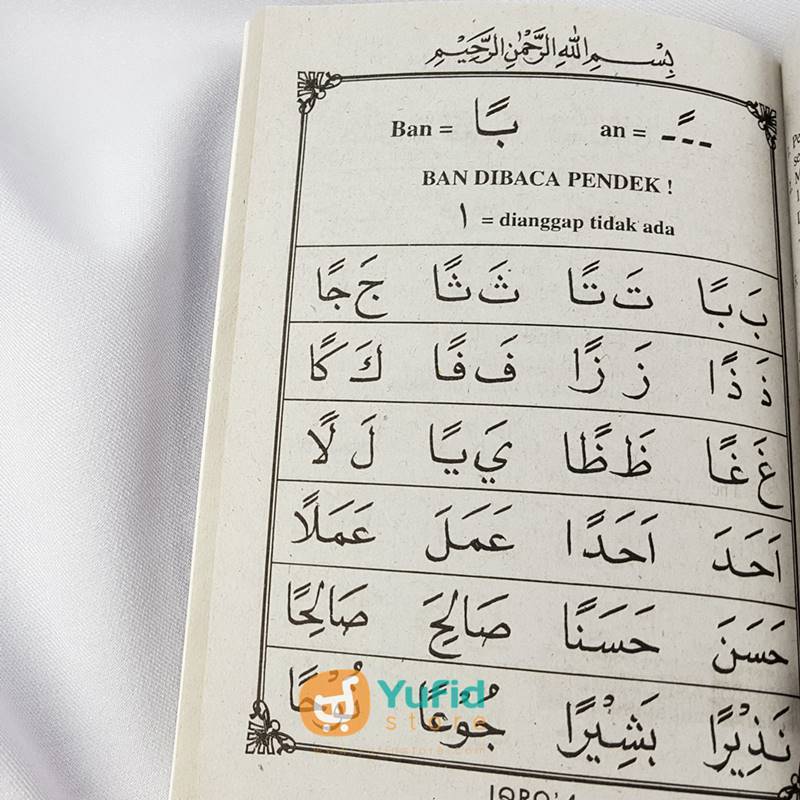 بِسْمِ اللهِ الرَّحْمٰنِ الرَّحِيْمِ
Ban = بًا an = ـًـ
BAN DIBACA PENDEK !
ا = dianggap tidak ada
بَ بًا تَ تًا ثَ ثًا جَ جًا
ذَ ذًا زَ زًا فَ فًا كَ كًا
غَ غًا ظَ ظًا يَ يًا لَ لًا
اَحَدَ اَحَدًا عَمَلَ عَمَلًا
حَسَنَ حَسَنًا صَالِحَ صَالِحًا
نَذِيْرًا بَشِيْرًا جُوْعًا نُوْحًا
Yufid
store
IQRO' 4